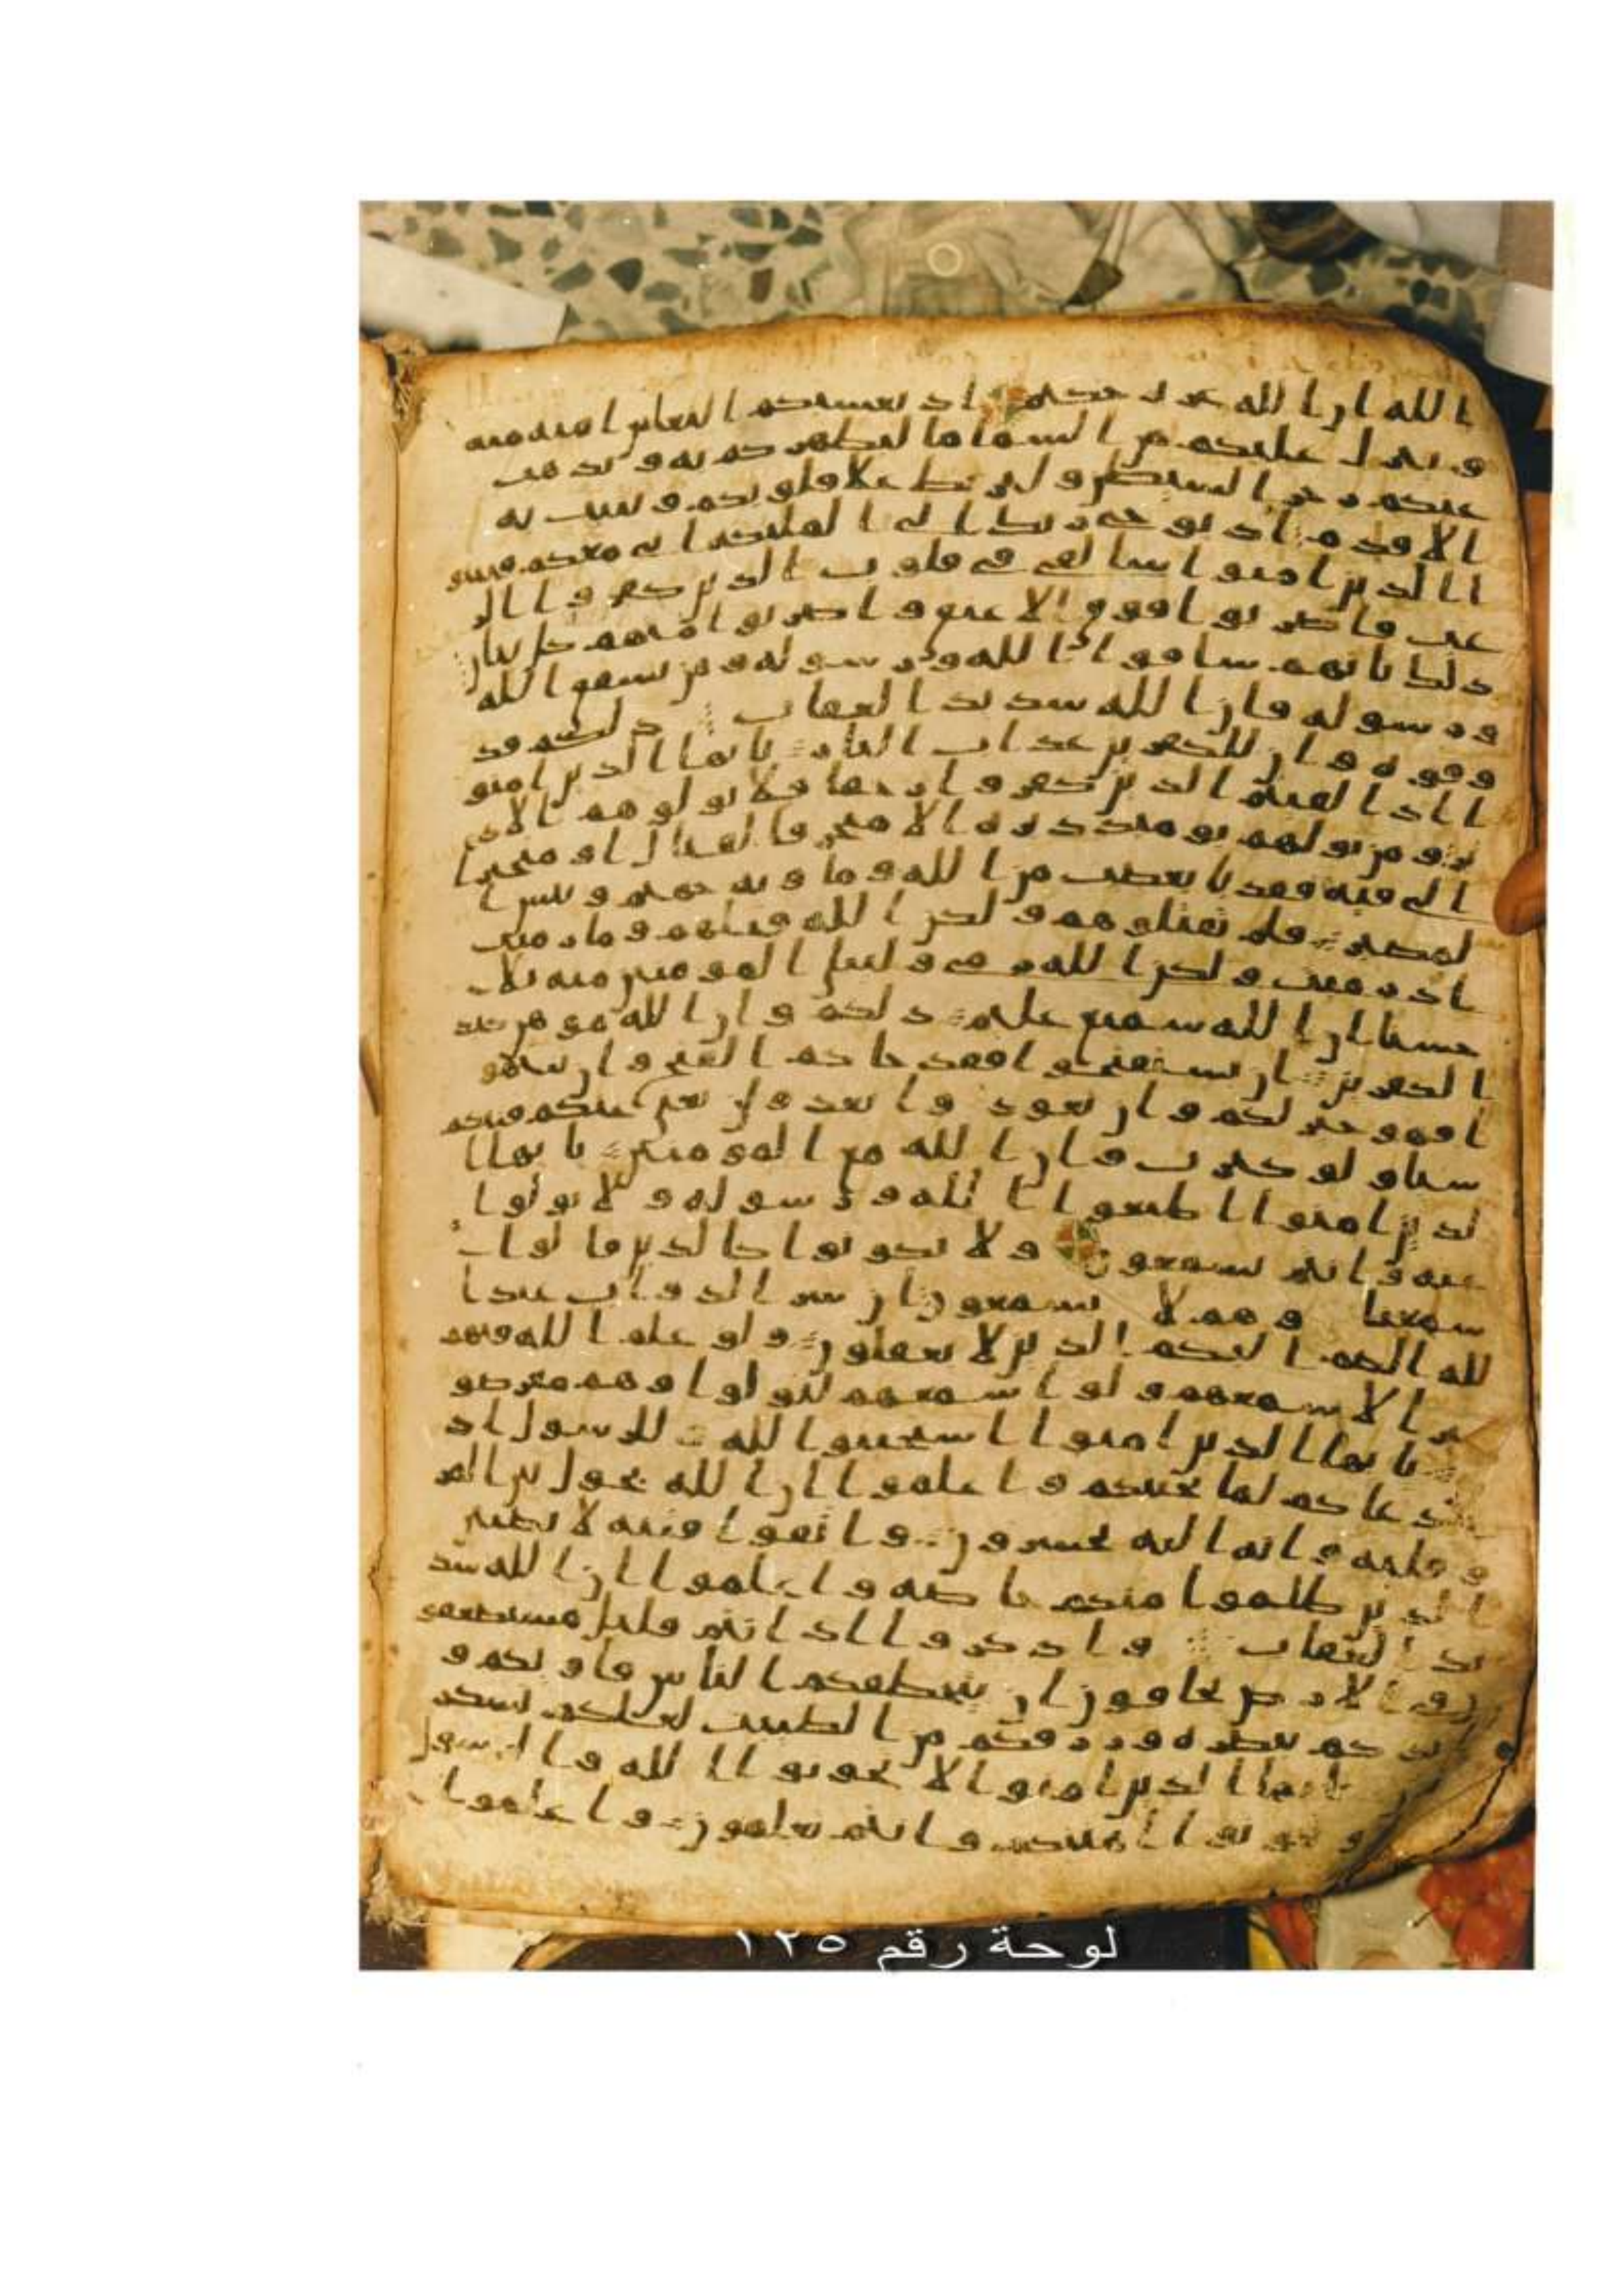 ا لله ان الله عزيز حكيم اذ يغشيكم النعاس امنة منه
و ينزل عليكم من السما ما ليطهركم به و يذهب
عنكم رجز الشيطن و ليربط علا قلوبكم و يثبت به
الاقدم اذ يوحي ربك الى الملئكة اني معكم فثبتو
ا الذين امنوا سالقي في قلوب الذين كفروا الر
عب فاضربوا فوق الاعنق و اضربوا منهم كل بنان
ذلك بانهم شاقوا الله ورسوله ومن يشقق الله
ورسوله فان الله شديد العقاب ذلكم فذ
وقوه و ان للكفرين عذاب النار يايها الذين امنو
ا اذا لقيتم الذين كفروا زحفا فلا تولوهم الاد
بر ومن يولهم يومئذ دبره الا متحرفا لقتال او متحيزا
الى فية فقد با بغضب من الله وماويه جهنم وبئس ا
لمصير فلم تقتلوهم ولكن الله قتلهم وما رميت
اذ رميت ولكن الله رمى وليبلي المومنين منه بلا
حسنا ان الله سميع عليم ذلكم وان الله موهن كيد
الكفرين ان تستفتحوا فقد جاكم الفتح وان تنتهو
ا فهو خير لكم وان تعودوا نعد ولن تغني عنكم فيتكم
شيا ولو كثرت وان الله مع المومنين يايها ا
لذين امنوا اطيعوا الله ورسوله ولا تولوا
عنه وانتم تسمعون ولا تكونوا كالذين قالوا
سمعنا وهم لا يسمعون ان شر الدواب عند ا
لله الصم البكم الذين لا يعقلون ولو علم الله فيهم
خيرا لاسمعهم ولو اسمعهم لتولوا وهم معرضو
ن يايها الذين امنوا استجيبوا لله وللرسول اذ
ا دعاكم لما يحييكم واعلموا ان الله يحول بين المر
وقلبه وانه اليه تحشرون واتقوا فتنة لا تصيبن
الذين ظلموا منكم خاصة واعلموا ان الله شد
يد العقاب واذكروا اذ انتم قليل مستضعفو
ن في الارض تخافون ان يتخطفكم الناس فاويكم و
يدكم بنصره ورزقكم من الطيبت لعلكم تشكر
يايها الذين امنوا لا تخونوا الله والرسول
وتخونوا امنتكم وانتم تعلمون واعلموا
لوحة رقم ١٢٥